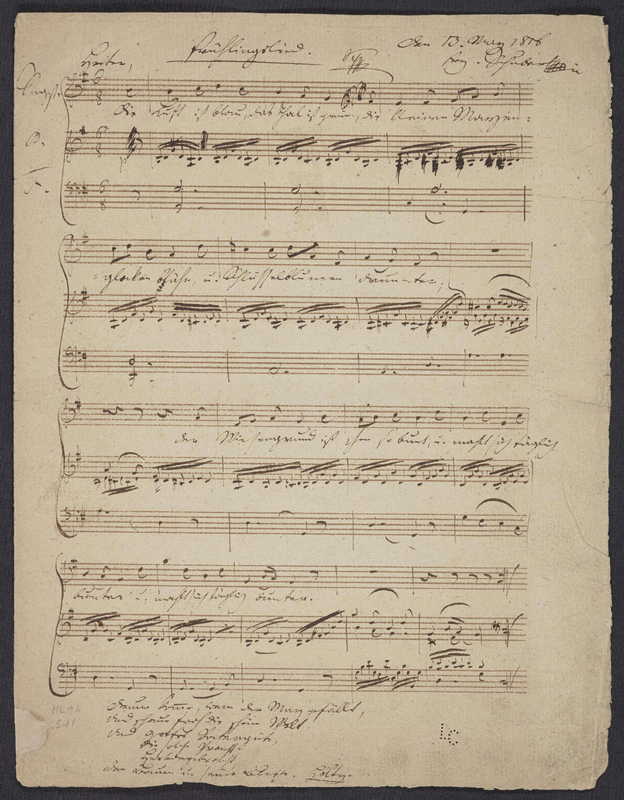 Frühlingslied. Den 13. May 1816
Heiter, Frz. Schubert
Singst.
P.
F.
Die Luft ist blau, das Thal ist grün, die kleinen Mayen=
=glocken blühn, u. Schlüsselblumen darunter;
der Wiesengrund ist schon so bunt, u. mahlt sich täglich
bunter u. mahlt sich täglich bunter.
Drum komme, wem der May gefällt,
Und schaue froh die schöne Welt
Und Gottes Vatergüte,
Die solche Pracht
Hervorgebracht
Den Baum u. seine Blüthe. Hölty.
ML96
.S41
LC